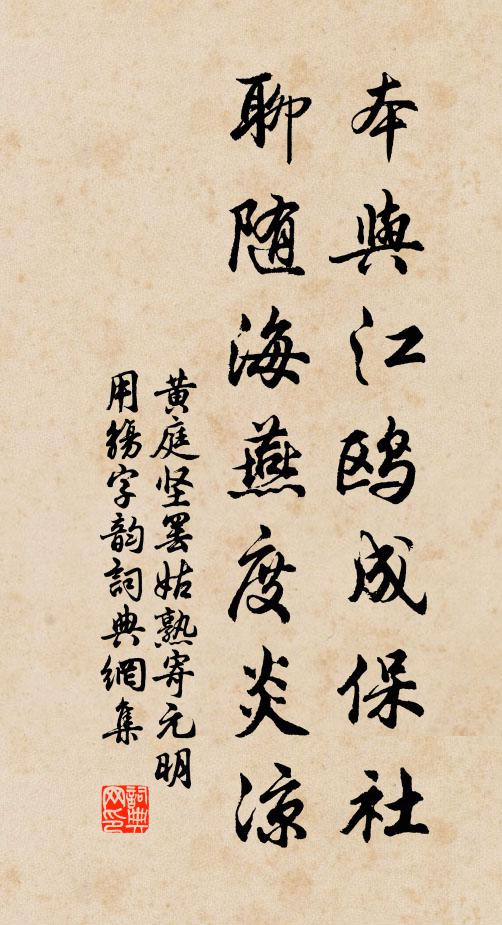 本與江鸥成保社
聊随海燕度炎凉
黄庭坚罢姑熟寄元明
用觞字韵詞典網集
詞典网印